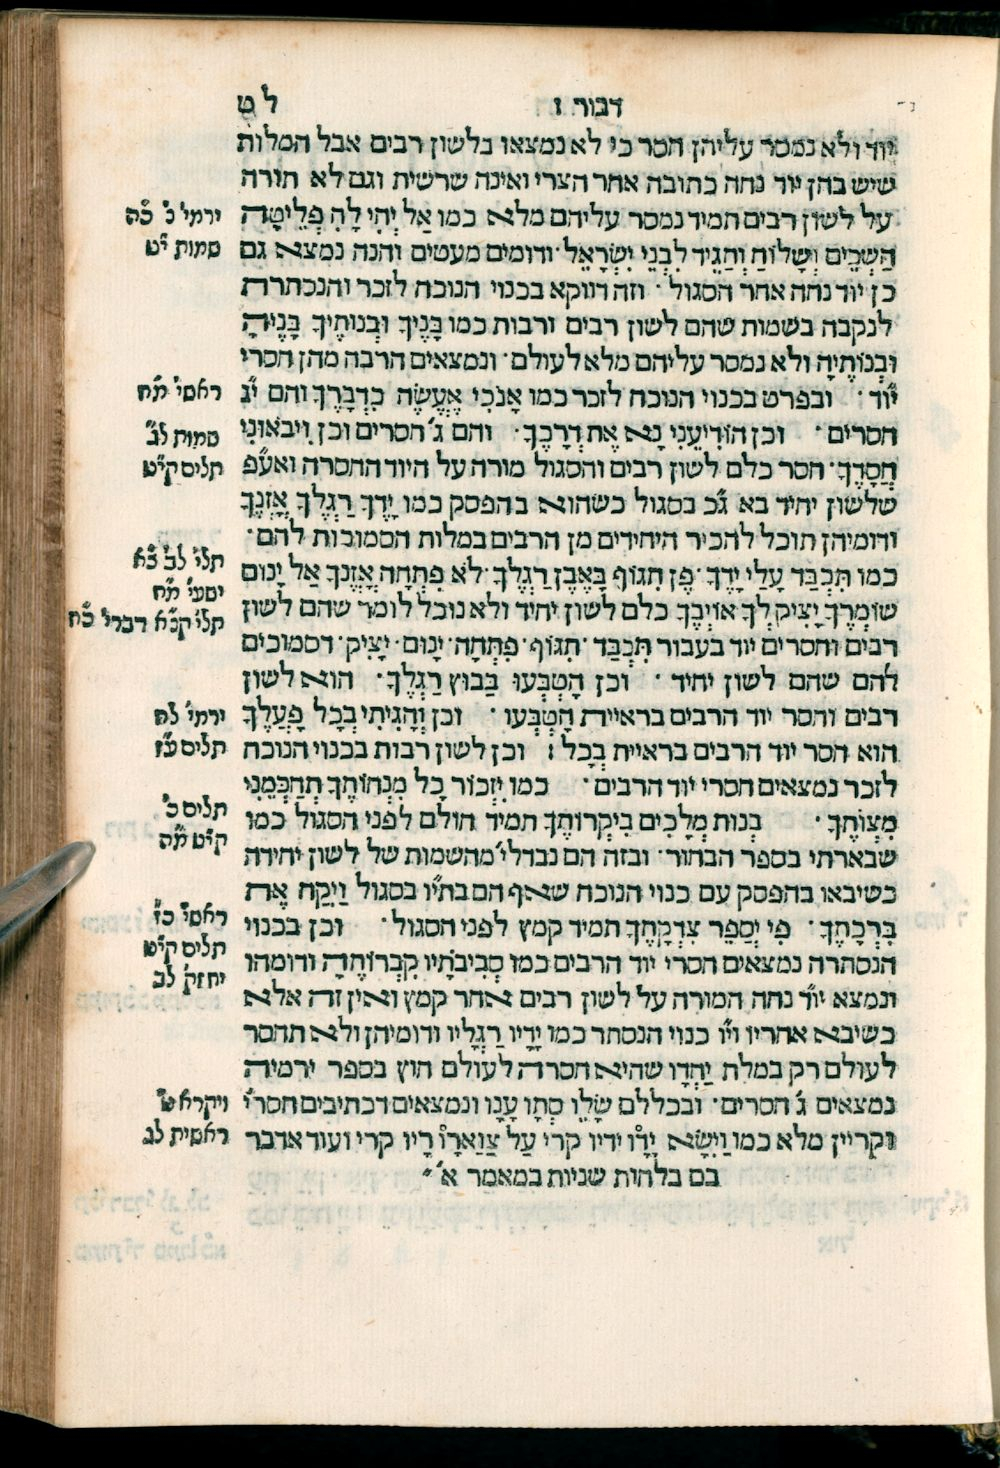 דבור ז לט
יוד ולא נמסר עליהן חסר כי לא נמצאו בלשון רבים אבל המלות
שיש בהן יוד נחה כתובה אחר הצרי ואינה שרשית וגם לא תורה
על לשון רבים תמיד נמסר עליהם מלא כמו אַל יְהִי לָהּ פְּלֵיטָה
הַשְׁכֵּים וְשָׁלוֹחַ וְתַגֵּיד לִבְנֵי יִשְׂרָאֵל · ודומים מעטים והנה נמצא גם
כן יוד נחה אחר הסגול · וזה דווקא בכנוי הנוכח לזכר והנסתרת
לנקבה בשמות שהם לשון רבים ורבות כמו בָּנֶיךָ וּבְנוֹתֶיךָ בָּנֶיהָ
וּבְנוֹתֶיהָ ולא נמסר עליהם מלא לעולם · ונמצאים הרבה מהן חסרי
יו״ד · ובפרט בכנוי הנוכח לזכר כמו אָנֹכִי אֶעֱשֶׂה כִדְבָרֶךָ והם י״ג
חסרים · וכן הוֹדִיעֵנִי נָא אֶת דְרָכֶךָ · והם ג׳ חסרים וכן וִיבֹאוּנִי
חֲסָדֶךָ · חסר כלם לשון רבים והסגול מורה על היוד החסרה ואע״פ
שלשון יחיד בא ג״כ בסגול כשהוא בהפסק כמו יָדֶךָ רַגְלֶךָ אָזְנֶךָ
ודומיהן תוכל להכיר היחידים מן הרבים במלות הסמוכות להם ·
כמו תִּכְבַּד עָלַי יָדֶךָ · פֶּן תִגּוֹף בָּאֶבֶן רַגְלֶךָ · לֹא פִתְּחָה אָזְנֶךָ אַל יָנוּם
שׁוֹמְרֶךָ יָצִיק לְךָ אוֹיְבֶךָ כלם לשון יחיד ולא נוכל לומר שהם לשון
רבים וחסרים יוד בעבור תִּכְבַּד · תִגּוֹף · פִּתְּחָה · יָנוּם · יָצִיק · דסמוכים
להם שהם לשון יחיד · וכן הָטְבְּעוּ בַבּוֹץ רַגְלֶךָ · הוא לשון
רבים וחסר יוד הרבים בראיית הָטְבְּעוּ · וכן וְהָגִיתִי בְכָל פָּעֳלֶךָ
הוא חסר יוד הרבים בראיית בְכָל : וכן לשון רבות בכנוי הנוכח
לזכר נמצאים חסרי יוד הרבים · כמו יִזְכּוֹר כָל מִנְחוֹתֶךָ תְּחַכְּמֵנִי
מִצְוֹתֶךָ · בְּנוֹת מְלָכִים בִּיקְרוֹתֶךָ תמיד חולם לפני הסגול כמו
שבארתי בספר הבחור · ובזה הם נבדלי׳ מהשמות של לשון יחידה
כשיבאו בהפסק עם כנוי הנוכח שאף הם בתיו בסגול וַיִקַח אֶת
בִּרְכָתֶךָ · פִּי יְסַפֵּר צִדְקָתֶךָ תמיד קמץ לפני הסגול · וכן בכנוי
הנסתרה נמצאים חסרי יוד הרבים כמו סְבִיבֹתָיו קְבְרוֹתֶהָ ודומהו
ונמצא יו״ד נחה המורה על לשון רבים אחר קמץ ואין זה אלא
כשיבא אחריו וי״ו כנוי הנסתר כמו יָדָיו רַגְלָיו ודומיהן ולא תחסר
לעולם רק במלת יַחְדָו שהיא חסרה לעולם חוץ בספר ירמיה
נמצאים ג׳ חסרים · ובכללם שָׂלֵו סְתָו עָנָו ונמצאים דכתיבים חסרי
וקריין מלא כמו וַיִּשָׂא יָדָו ידיו קרי עַל צַוָּארָו רָיו קרי ועוד אדבר
בם בלחות שניות במאמר א׳
ירמי׳ נ׳ כ״ה
שמות י״ט
ראשי׳ מ״ח
שמות ל״ב
תלים קי״ט
תלי׳ לב צ״א
ישעי׳ מ״ח
תלי׳ קכ״א דברי׳ כ״ח
ירמי׳ לח
תלים ע״ז
תלים כ׳
קי״ט מ״ה
ראשי׳ כ״ז
תלים קי״ט
יחזק׳ לב
ויקרא ט׳
ראשית לג